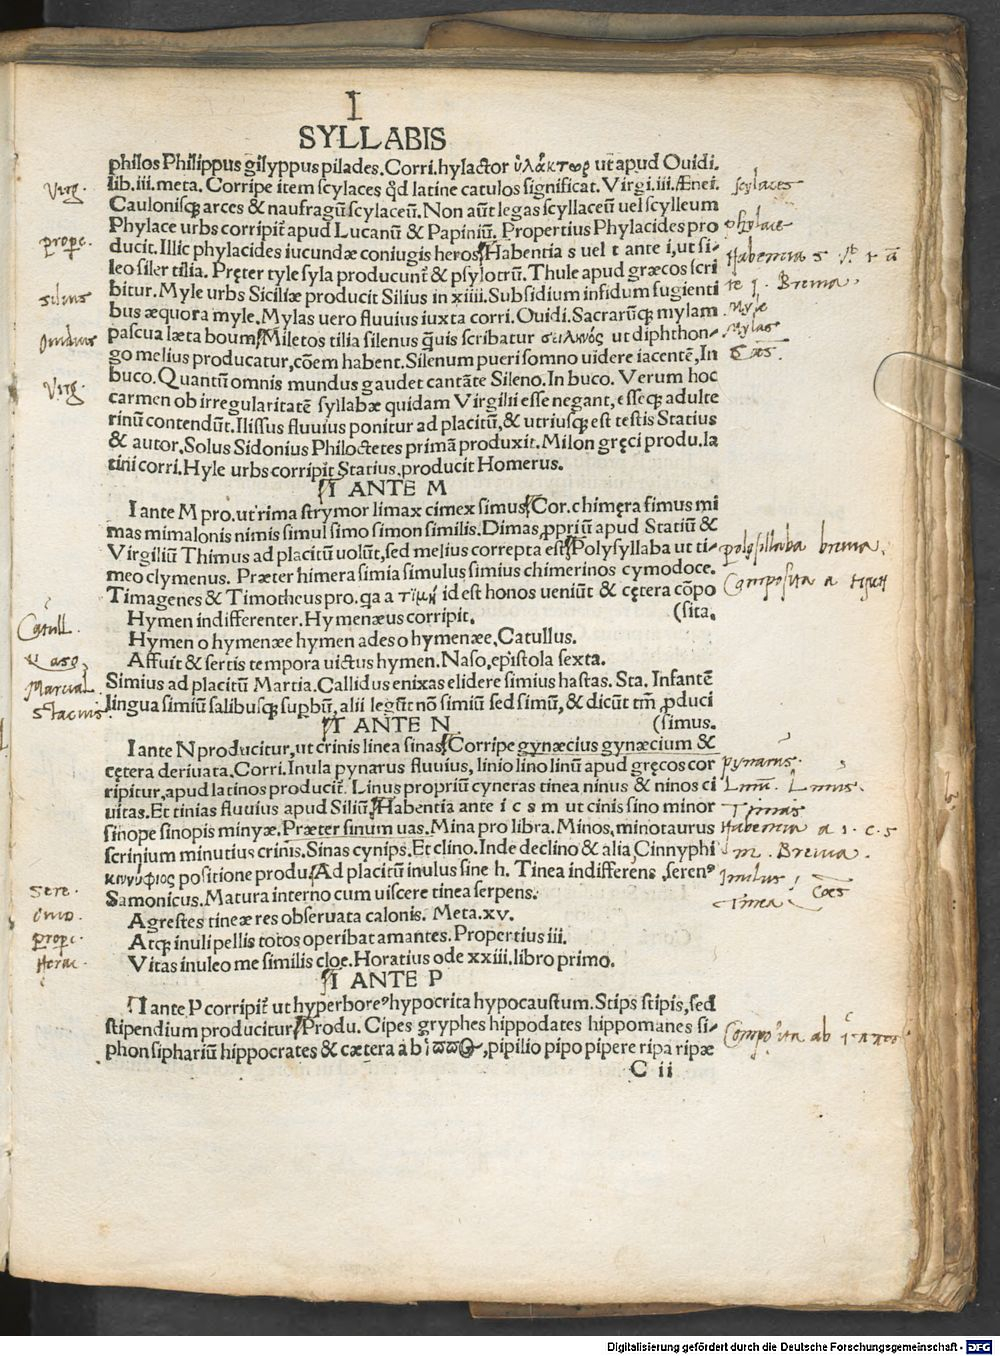 I
SYLLABIS
philos Philippus gilyppus pilades. Corri. hylactor ὑλάκτωρ ut apud Ouidi.
lib. iii. meta. Corripe item scylaces q̄d latine catulos significat. Virgi. iii. Æneí.
Caulonisq; arces & naufragū scylaceū. Non aūt legas scyllaceū uel scylleum
Phylace urbs corripit̄ apud Lucanū & Papiniū. Propertius Phylacides pro
ducit. Illic phylacides iucundæ coniugis heros. Habentia s uel t ante i, ut si-
leo siler tilia. Pręter tyle syla producunt̄ & psylotrū. Thule apud græcos scri
bitur. Myle urbs Siciliæ producit Silius in xiiii. Subsidium infidum fugienti
bus æquora myle. Mylas uero fluuius iuxta corri. Ouidi. Sacrarūq; mylam
pascua læta boum. Miletos tilia silenus q̄uis scribatur σειληνός ut diphthon-
go melius producatur, cōem habent. Silenum pueri somno uidere iacentē, In
buco. Quantū omnis mundus gaudet cantāte Sileno. In buco. Verum hoc
carmen ob irregularitatē syllabæ quidam Virgilii esse negant, esseq; adulte
rinū contendūt. Ilissus fluuius ponitur ad placitū, & utriusq; est testis Statius
& autor. Solus Sidonius Philoctetes primā produxit. Milon gręci produ. la
tini corri. Hyle urbs corripit Statius, producit Homerus.
I ANTE M
I ante M pro. ut rima strymor limax cimex simus. Cor. chimęra fimus mi
mas mimalonis nimis simul simo simon similis. Dimas, ꝓpriū apud Statiū &
Virgiliū Thimus ad placitū uolūt, sed melius correpta est. Polysyllaba ut ti-
meo clymenus. Præter himera simia simulus simius chimerinos cymodoce.
Timagenes & Timotheus pro. qa a τιμή id est honos ueniūt & cętera cōpo
Hymen indifferenter. Hymenæus corripit. (sita.
Hymen o hymenæe hymen ades o hymenæe. Catullus.
Affuit & sertis tempora uictus hymen. Naso, epistola sexta.
Simius ad placitū Martia. Callidus enixas elidere simius hastas. Sta. Infantē
lingua simiū salibusq; supbū, alii legūt nō simiū sed simū, & dicūt tm̄ ꝓduci
I ANTE N (simus.
I ante N producitur, ut crinis linea sinas. Corripe gynæcius gynæcium &
cętera deriuata. Corri. Inula pynarus fluuius, linio lino linū apud gręcos cor
ripitur, apud latinos producit̄. Linus propriū cyneras tinea ninus & ninos ci
uitas. Et tinias fluuius apud Siliū. Habentia ante i c s m ut cinis sino minor
sinope sinopis minyæ. Præter sinum uas. Mina pro libra. Minos, minotaurus
scrinium minutius crinis. Sinas cynips. Et clino. Inde declino & alia, Cinnyphi
κινύφιος positione produ. Ad placitū inulus sine h. Tinea indifferens, serenꝰ
Samonicus. Matura interno cum uiscere tinea serpens.
Agrestes tineæ res obseruata calonis. Meta. xv.
Atq; inuli pellis totos operibat amantes. Propertius iii.
Vitas inuleo me similis cloe. Horatius ode xxiii. libro primo.
I ANTE P
I ante P corripit̄ ut hyperboreꝰ hypocrita hypocaustum. Stips stipis, sed
stipendium producitur. Produ. Cipes gryphes hippodates hippomanes si-
phon siphariū hippocrates & cætera ab ἵππος, pipilio pipo pipere ripa ripæ
C ii
Virg.
prope.
silius
Ouidius
Virg.
Catull.
Naso.
Marcial.
Stacius
Sere.
Ouid.
prope.
Horac.
scylaces
phylace
Habentia s t a
te i. Breuia.
Myle
Mylas
Cōes.
polysillaba breuia.
Composita a τιμή
pynarus.
Linū. Linus.
Tinias
Habentia a i. c. s
m. Breuia.
Inulus
Tinea Cōes
Composita ab
Digitalisierung gefördert durch die Deutsche Forschungsgemeinschaft - DFG